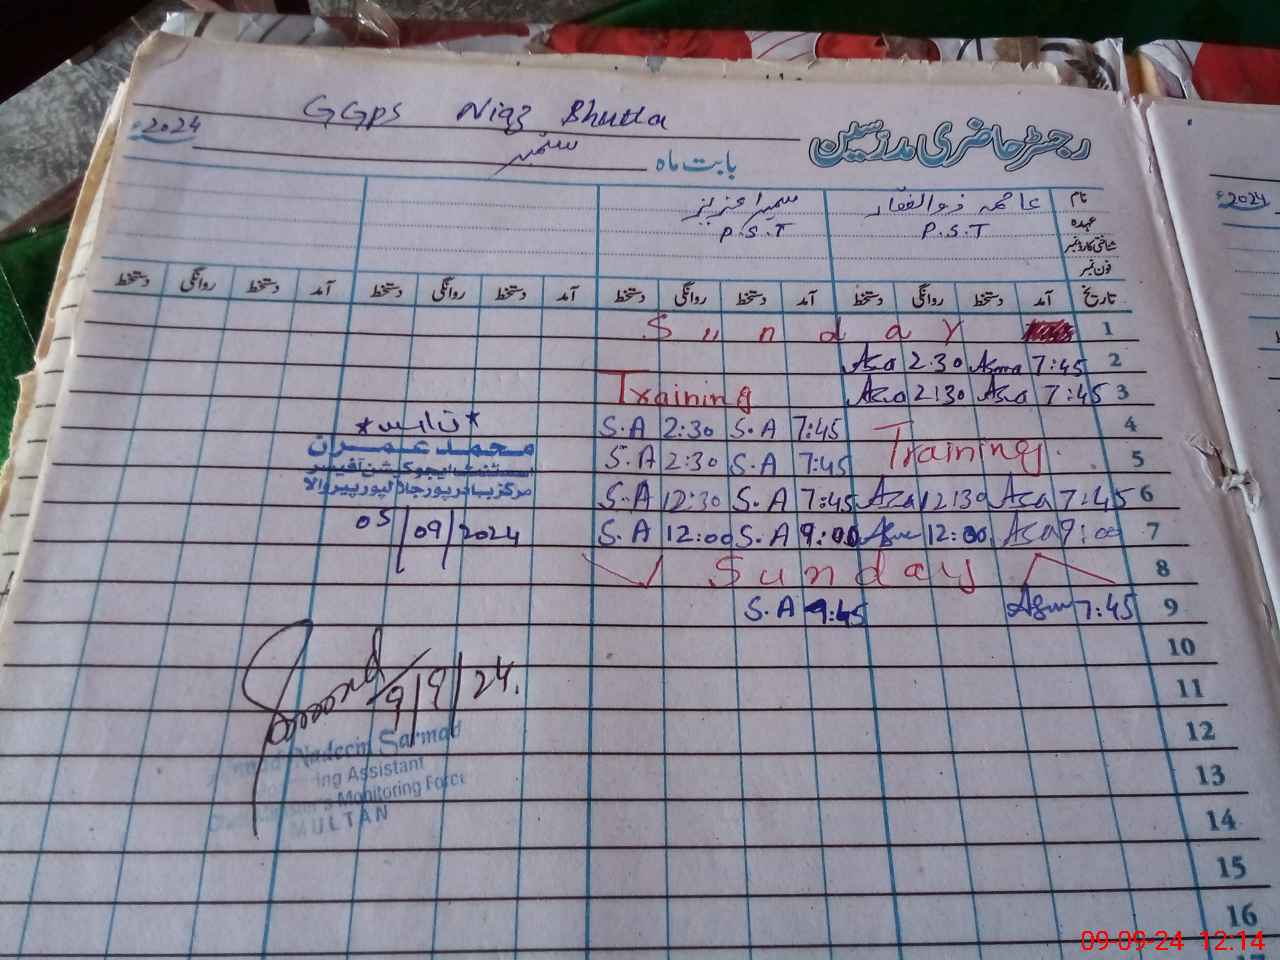 GGPS Niaz Bhutta
رجسٹر حاضری مدرسین
بابت ماہ ستمبر 2024ء
نام عاصمہ ذوالفقار سمیرا عزیز
عہدہ P.S.T P.S.T
شناختی کارڈ نمبر
فون نمبر
تاریخ آمد دستخط روانگی دستخط آمد دستخط روانگی دستخط آمد دستخط روانگی دستخط آمد دستخط روانگی دستخط
1 Sunday
2 7:45 Asma 2:30 Asa
3 7:45 Asa 2:30 Asa Training
4 Training 7:45 S.A 2:30 S.A
5 7:45 S.A 2:30 S.A
6 7:45 Asa 12:30 Asa 7:45 S.A 12:30 S.A
7 9:00 Asa 12:00 9:00 S.A 12:00 S.A
8 Sunday
9 7:45 Asm S.A
10
11
12
13
14
15
16
محمد عمران
اسسٹنٹ ایجوکیشن آفیسر
مرکز بہادر پور جلالپور پیروالا
05/09/2024
9/9/24.
Nadeem Sarmad
ing Assistant
Monitoring Force
MULTAN
2024ء
09-09-24 12:14